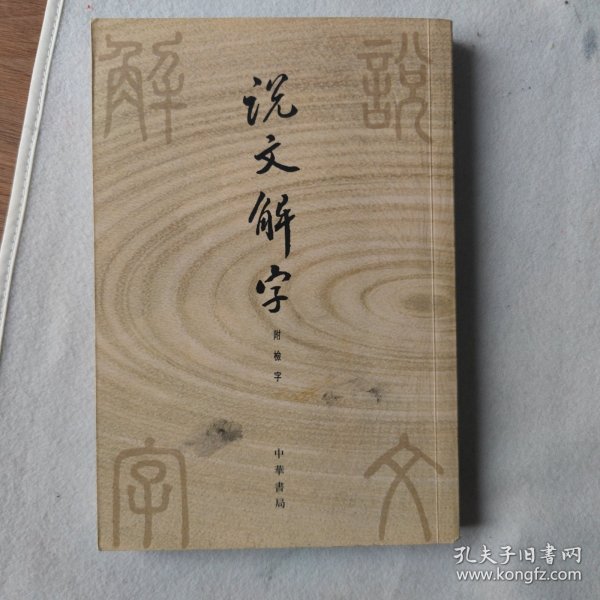 説文
解字
说文解字
附檢字
中華書局
孔夫子旧书网
www.kongfz.com